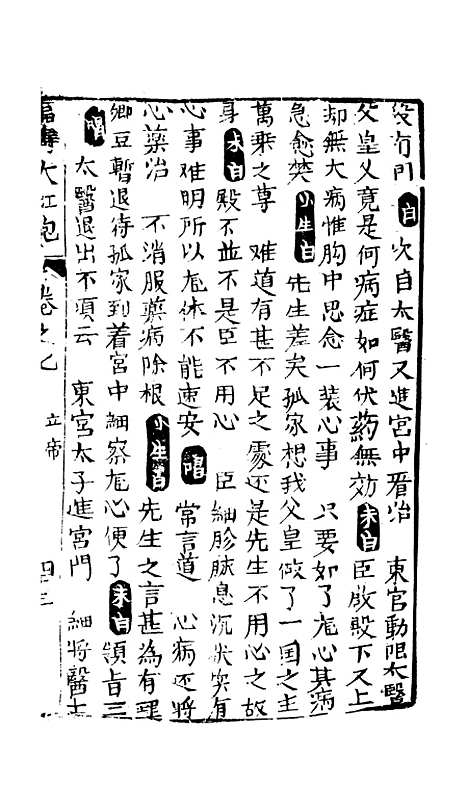 父有門 白 次自太醫又進宮中看治 東宮動限太醫
父皇父竟是何病症如何伏药無効 末白 臣啟殿下又上
却無大病惟胸中思念一裝心事 只要如了尨心其病
急愈焚 小生白 先生差矣孤家想我父皇做了一国之主
萬乘之尊 难道有甚不足之處还是先生不用心之故
身 末白 殿下並不是臣不用心 臣細胗脉息沉伏实有
心事难明所以尨体不能速安 唱 常言道 心病还將
心藥治 不消服藥病除根 小生白 先生之言甚為有理
卿豆暫退待孤家到着宮中細察尨心便了 末白 領旨三
唱 太醫退出不須云 東宮太子進宮門 細將醫士
大红袍 卷之乙 立帝 四十三